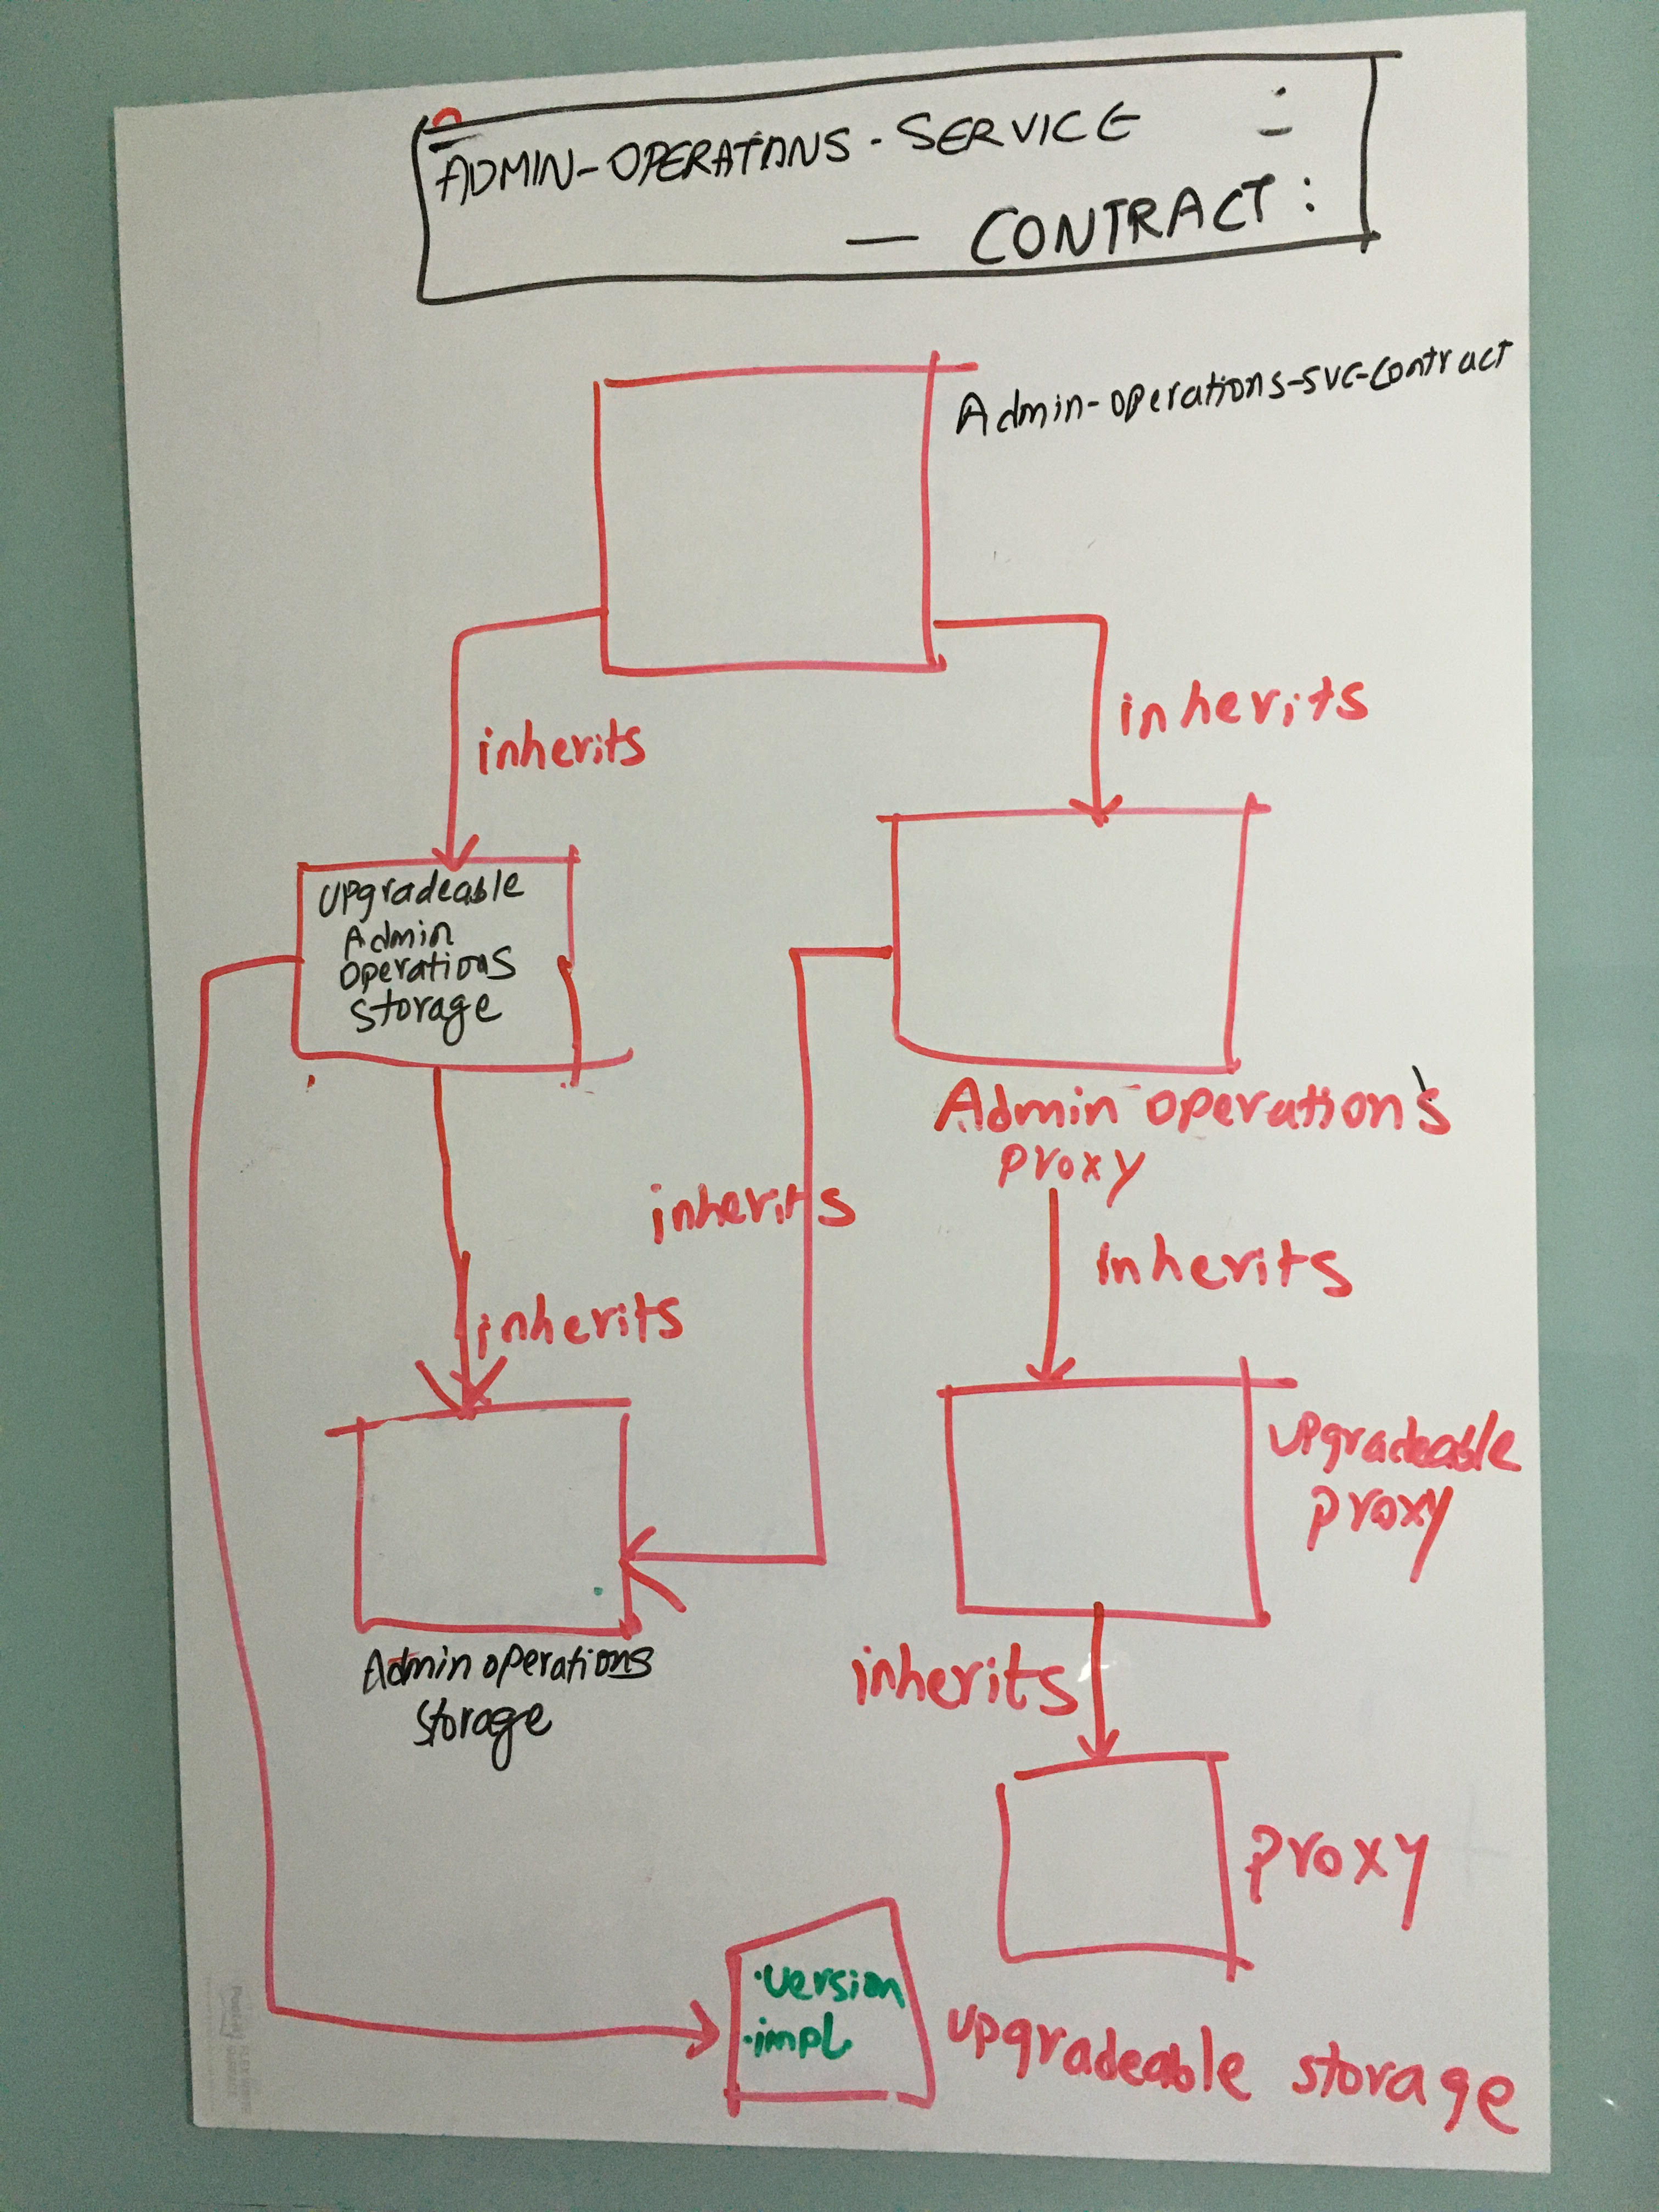 ADMIN-OPERATIONS-SERVICE :
— CONTRACT :
Admin-operations-svc-contract
inherits
inherits
Upgradeable
Admin
Operations
Storage
Admin operation's
proxy
inherits
inherits
inherits
Upgradeable
proxy
Admin operations
Storage
inherits
proxy
·Version
·impl
Upgradeable storage